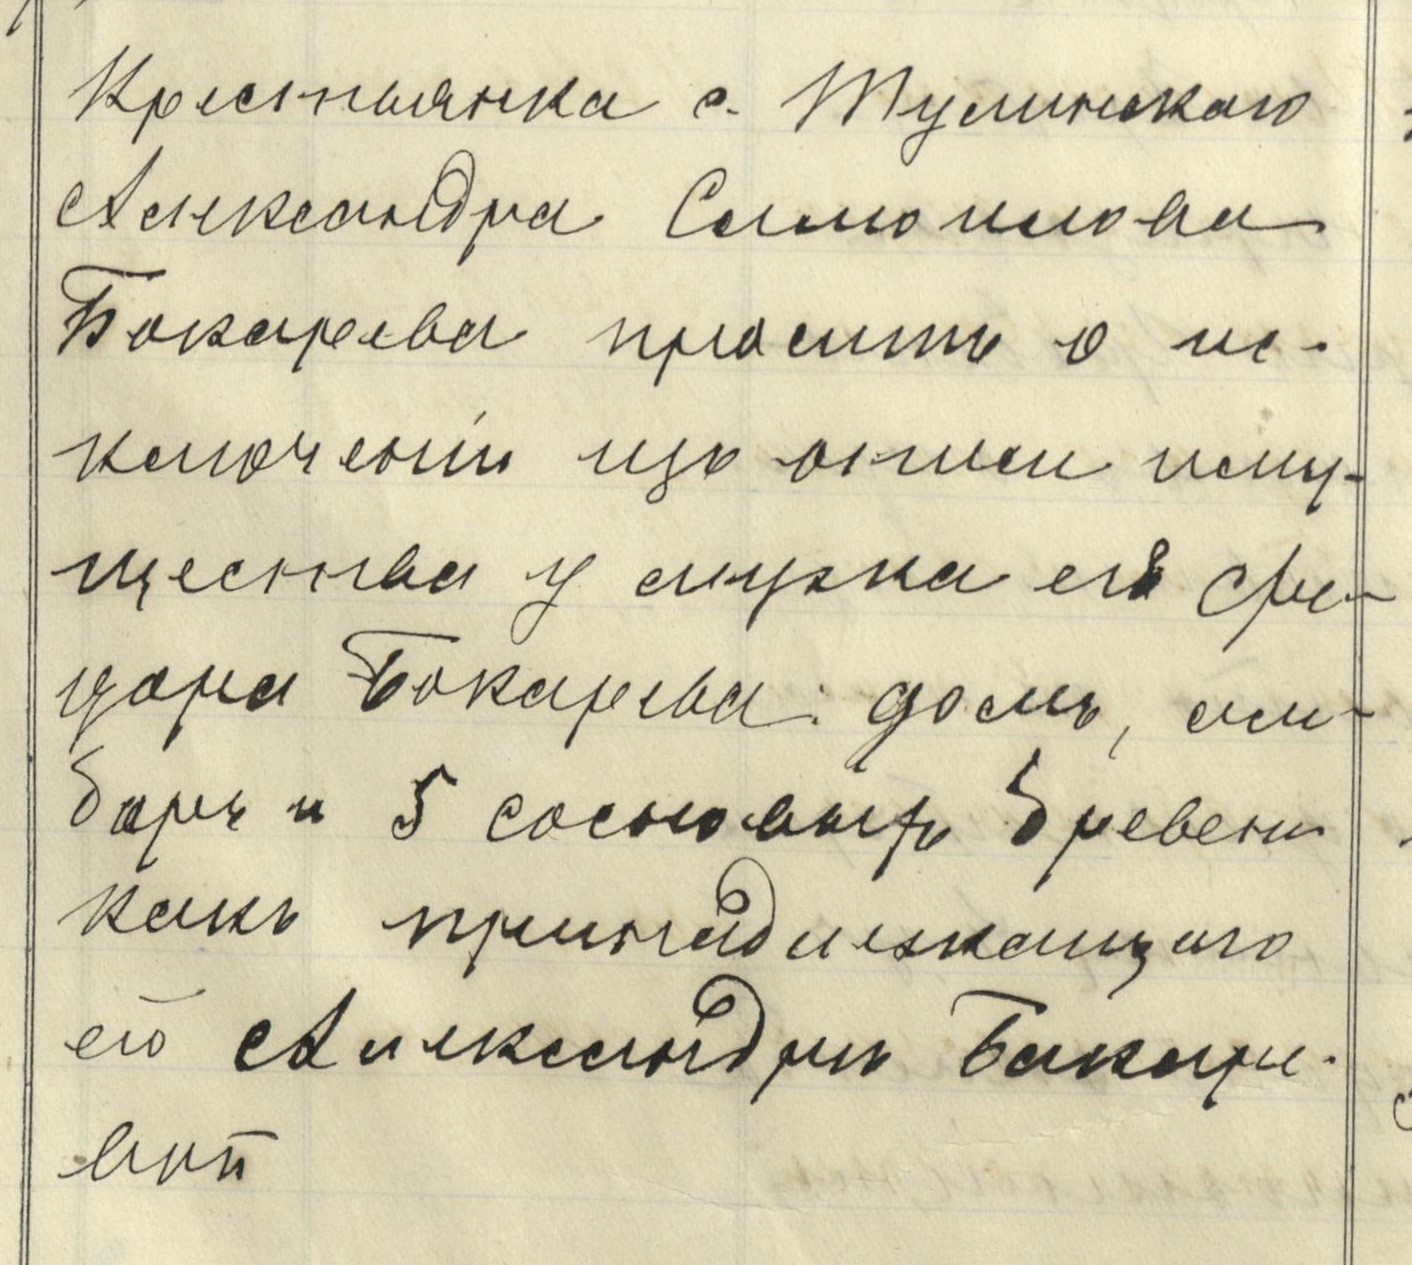 Крестьянка с. Тулинскаго
Александра Самоилова
Бокарева проситъ о ис-
ключеніи изъ описи иму-
щества у мужа ея Фе-
дора Бокарева: домъ, ам-
баръ и 5 сосновыхъ бревенъ
какъ принадлежащаго
ей Александрѣ Бакаре-
вой